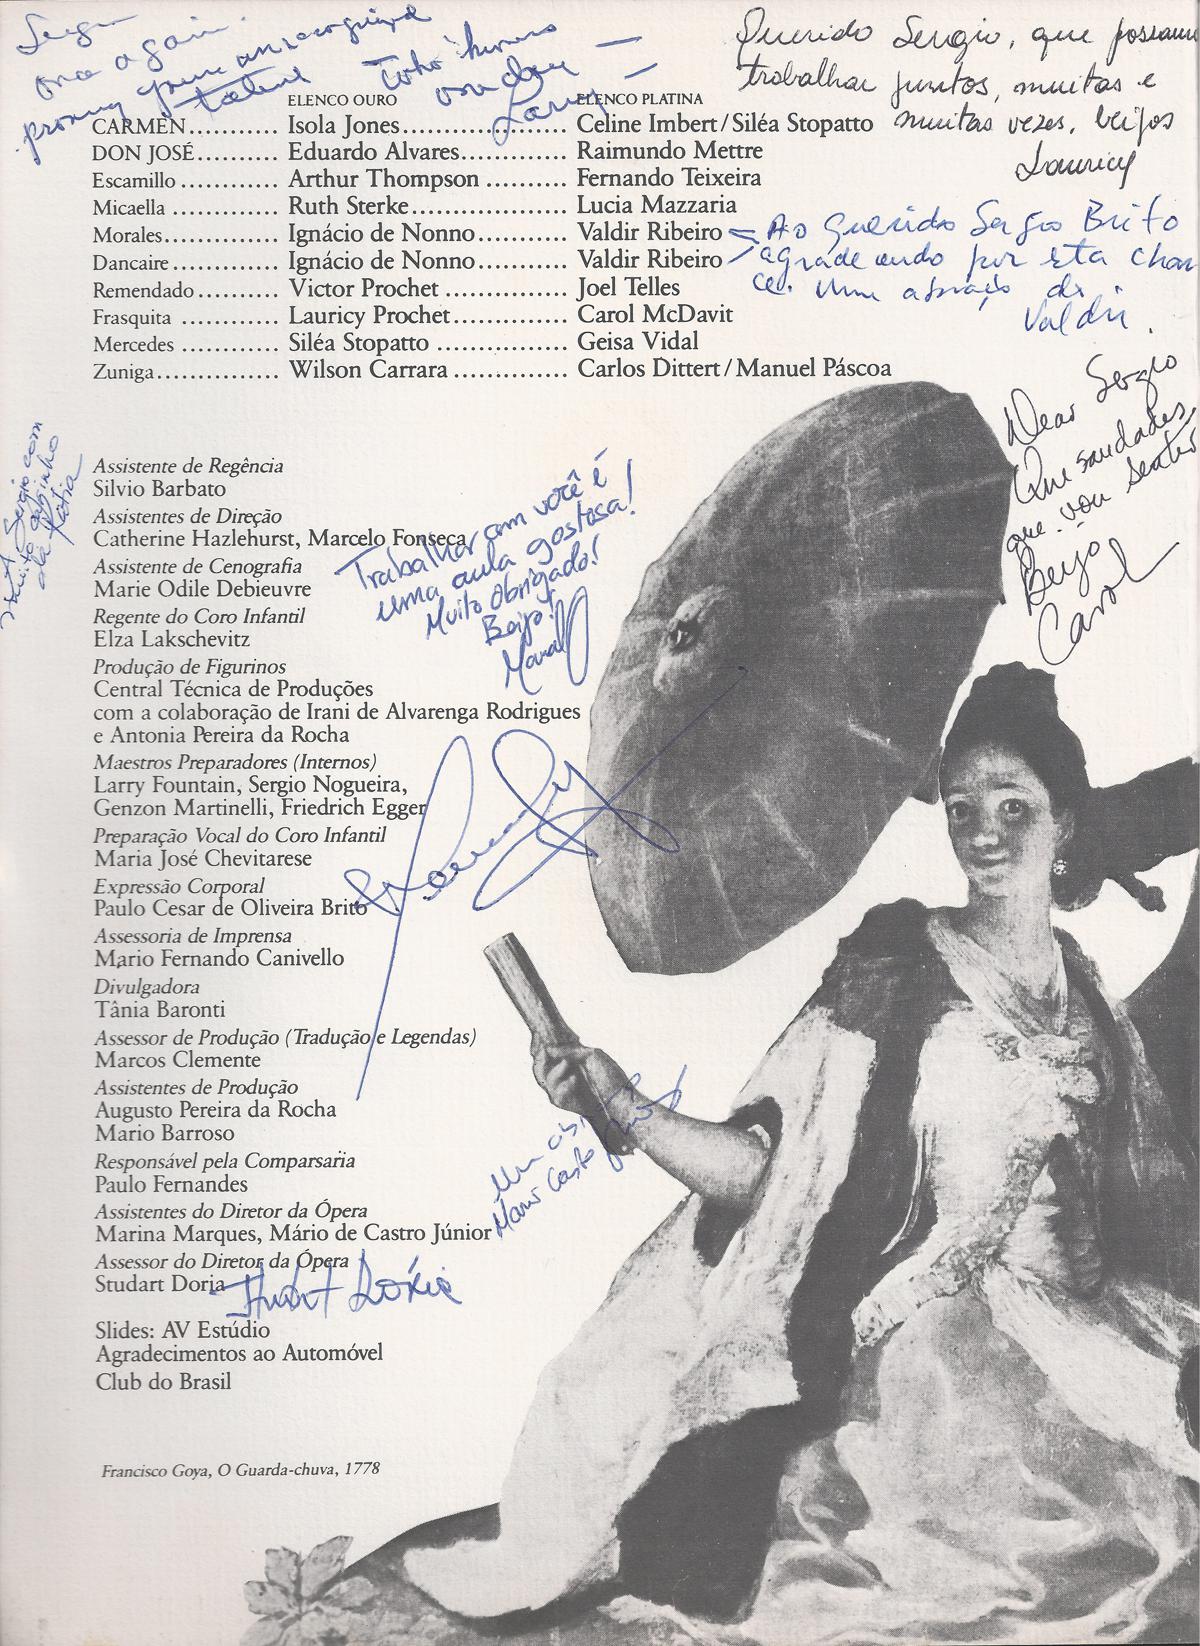 Sergio
once again
talent
Querido Sergio, que possamos
trabalhar juntos, muitas e
muitas vezes, beijos
Lauricy
ELENCO OURO ELENCO PLATINA
CARMEN.............. Isola Jones........................ Celine Imbert/Siléa Stopatto
DON JOSÉ.......... Eduardo Alvares................ Raimundo Mettre
Escamillo ............... Arthur Thompson .......... Fernando Teixeira
Micaella ................ Ruth Sterke....................... Lucia Mazzaria
Morales................. Ignácio de Nonno............. Valdir Ribeiro
Dancaire ................ Ignácio de Nonno............. Valdir Ribeiro
Remendado ............ Victor Prochet .................. Joel Telles
Frasquita ............... Lauricy Prochet................. Carol McDavit
Mercedes ............... Siléa Stopatto ................... Geisa Vidal
Zuniga................... Wilson Carrara ................. Carlos Dittert/Manuel Páscoa
Ao querido Sergio Brito
agradecendo por esta chan
ce. Um abraço do
Valdir.
Dear Sergio
Que saudades
que vou sentir
Beijo
Carol
A Sergio com
muito carinho
da Katia
Trabalhar com você é
uma aula gostosa!
Muito obrigado!
Beijo!
Assistente de Regência
Silvio Barbato
Assistentes de Direção
Catherine Hazlehurst, Marcelo Fonseca
Assistente de Cenografia
Marie Odile Debieuvre
Regente do Coro Infantil
Elza Lakschevitz
Produção de Figurinos
Central Técnica de Produções
com a colaboração de Irani de Alvarenga Rodrigues
e Antonia Pereira da Rocha
Maestros Preparadores (Internos)
Larry Fountain, Sergio Nogueira,
Genzon Martinelli, Friedrich Egger
Preparação Vocal do Coro Infantil
Maria José Chevitarese
Expressão Corporal
Paulo Cesar de Oliveira Brito
Assessoria de Imprensa
Mario Fernando Canivello
Divulgadora
Tânia Baronti
Assessor de Produção (Tradução e Legendas)
Marcos Clemente
Assistentes de Produção
Augusto Pereira da Rocha
Mario Barroso
Responsável pela Comparsaria
Paulo Fernandes
Assistentes do Diretor da Ópera
Marina Marques, Mário de Castro Júnior
Assessor do Diretor da Ópera
Studart Doria
Studart Doria
Slides: AV Estúdio
Agradecimentos ao Automóvel
Club do Brasil
Francisco Goya, O Guarda-chuva, 1778